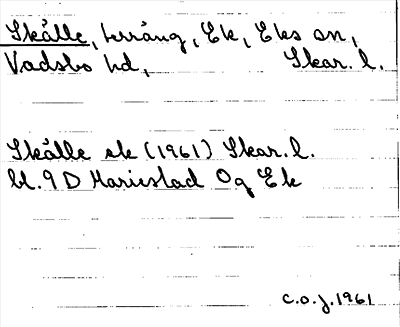 Skålle, terräng, Ek, Eks sn,
Vadsbo hd, Skar. l.
Skålle sk (1961) Skar. l.
bl. 9 D Mariestad Og Ek
C.O.J. 1961